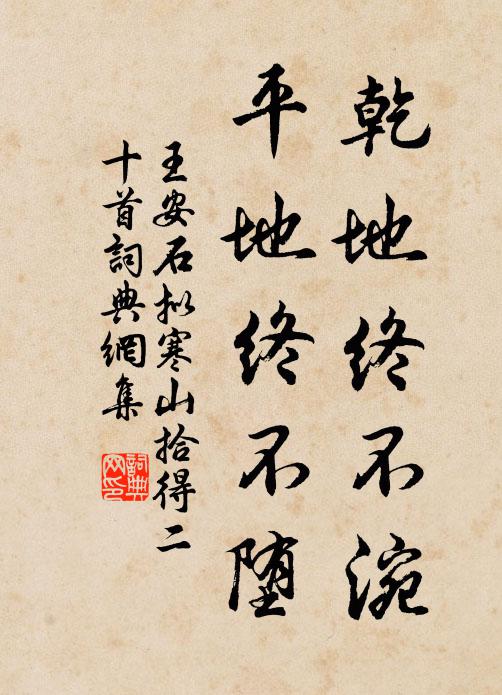 乾地終不涴
平地終不堕
王安石拟寒山拾得二
十首詞典網集
詞典
网印